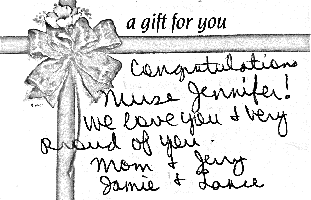 a gift for you
Congratulations
Nurse Jennifer!
We love you & very
proud of you.
Mom & Jerry
Jamie & Lance